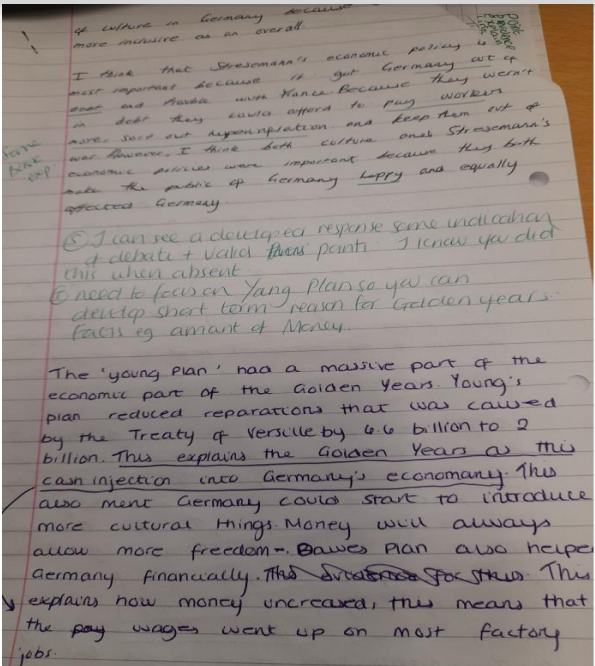 of culture in Germany because
more inclusive as an overall.
Point
Evidence
Explain
Link
I think that Stresemann's economic policy is
most important because it got Germany out of
debt and trouble with France Because they wern't
in debt they could afford to pay workers
more, sort out hyperinflation and keep them out of
war. However, I think both culture and Stresemann's
economic policies were important because they both
make the public of Germany happy and equally
affected Germany.
(S) I can see a developed response some indication
of debate + valid points. I know you did
this when absent
need to focus on Yang Plan so you can
develop short term reason for Golden years.
Facts eg amant of Money.
The 'young Plan' had a massive part of the
economic part of the Golden Years. Young's
plan reduced reparations that was caused
by the Treaty of Versille by 6.6 billion to 2
billion. This explains the Golden Years as this
cash injection into Germany's economany. This
also ment Germany could start to introduce
more cultural things. Money will always
allow more freedom. Dawes Plan also helpe
Germany financially. This
explains how money uncreased, this means that
the pay wages went up on most factory
jobs.